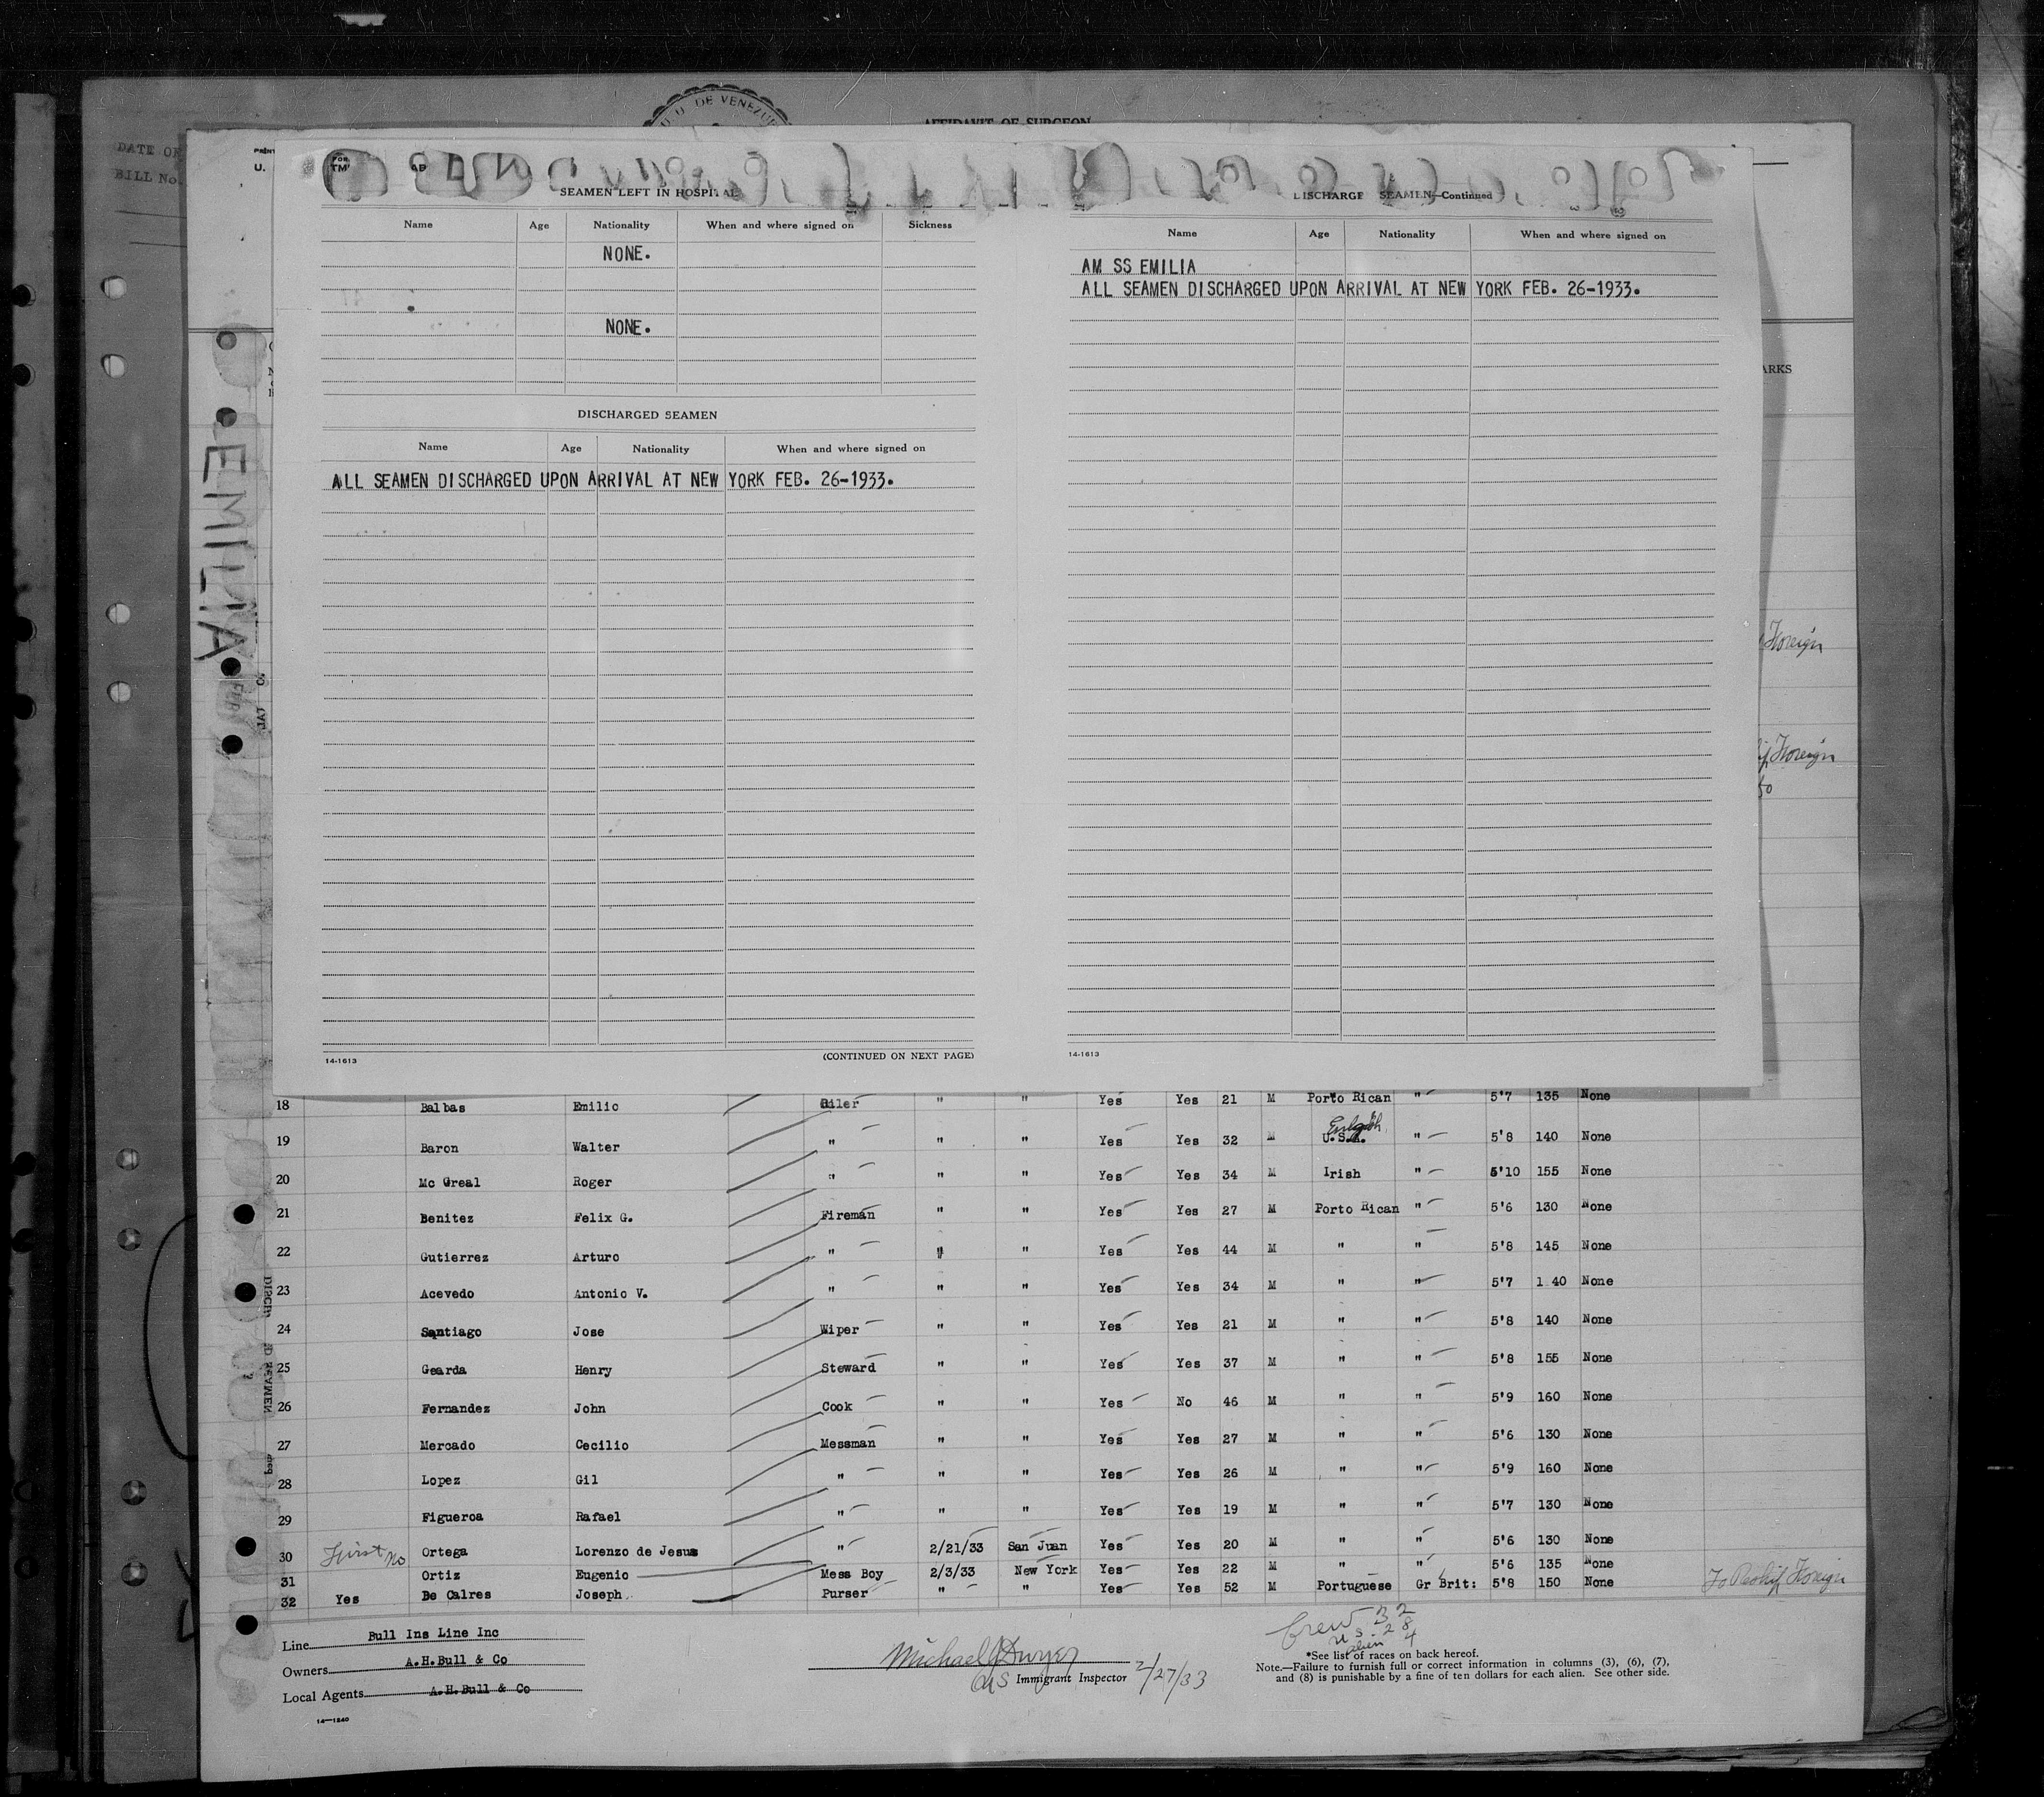 U. DE VENEZU
AFFIDAVIT OF SURGEON
DATE OF
BILL No.
U.
SEAMEN LEFT IN HOSPITAL
Name Age Nationality When and where signed on Sickness
NONE.
NONE.
DISCHARGED SEAMEN
Name Age Nationality When and where signed on
ALL SEAMEN DISCHARGED UPON ARRIVAL AT NEW YORK FEB. 26-1933.
14-1613 (CONTINUED ON NEXT PAGE)
SEAMEN—Continued
Name Age Nationality When and where signed on
AM SS EMILIA
ALL SEAMEN DISCHARGED UPON ARRIVAL AT NEW YORK FEB. 26-1933.
14-1613
EMILIA
ARKS
Foreign
Foreign
18 Balbas Emilio Oiler " " Yes Yes 21 M Porto Rican " 5'7 135 None
English
19 Baron Walter " " " Yes Yes 32 M U.S.A. " 5'8 140 None
20 Mc Greal Roger " " " Yes Yes 34 M Irish " 5'10 155 None
21 Benitez Felix G. Fireman " " Yes Yes 27 M Porto Rican " 5'6 130 None
22 Gutierrez Arturo " " " Yes Yes 44 M " " 5'8 145 None
23 Acevedo Antonio V. " " " Yes Yes 34 M " " 5'7 1 40 None
24 Santiago Jose Wiper " " Yes Yes 21 M " " 5'8 140 None
25 Gearda Henry Steward " " Yes Yes 37 M " " 5'8 155 None
26 Fernandez John Cook " " Yes No 46 M " " 5'9 160 None
27 Mercado Cecilio Messman " " Yes Yes 27 M " " 5'6 130 None
28 Lopez Gil " " " Yes Yes 26 M " " 5'9 160 None
29 Figueroa Rafael " " " Yes Yes 19 M " " 5'7 130 None
30 First No Ortega Lorenzo de Jesus " 2/21/33 San Juan Yes Yes 20 M " " 5'6 130 None
31 Ortiz Eugenio Mess Boy 2/3/33 New York Yes Yes 22 M " " 5'6 135 None
32 Yes De Calres Joseph Purser " " Yes Yes 52 M Portuguese Gr Brit: 5'8 150 None To Reship Foreign
Line Bull Ins Line Inc
Owners A.H.Bull & Co
Local Agents A.H.Bull & Co
14—1240
Michael J Dwyer
Immigrant Inspector 2/27/33
Crew 32
U S 28
Alien 4
*See list of races on back hereof.
Note.—Failure to furnish full or correct information in columns (3), (6), (7),
and (8) is punishable by a fine of ten dollars for each alien. See other side.